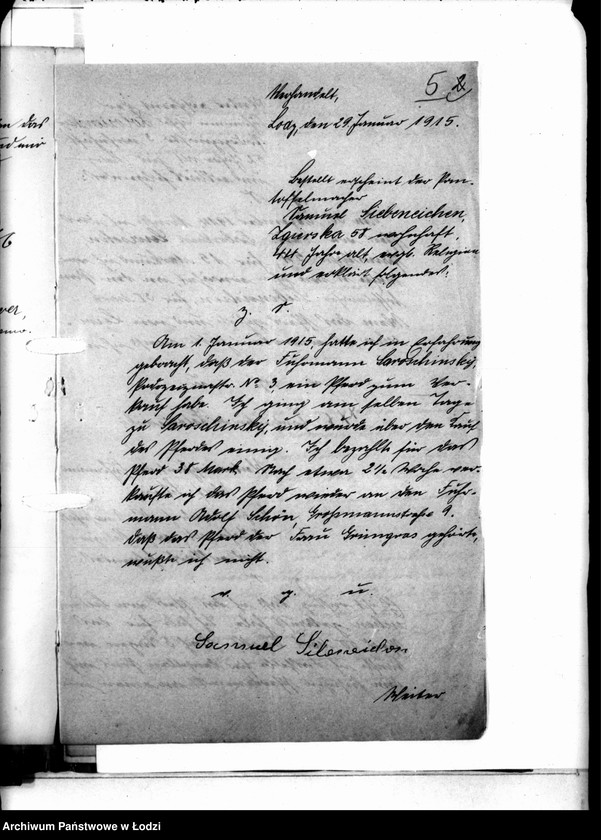 en das
nd mir
5 2
Verhandelt,
Lodz, den 29. Januar 1915.
Bestellt erscheint der Pan-
toffelmacher
Samuel Siebeneichen,
Zgierska 58 wohnhaft,
44 Jahre alt, evgl. Religion
und erklärt folgendes:
z. S.
Am 1. Januar 1915, hatte ich in Erfahrung
gebracht, daß der Fuhrmann Saroschinsky,
No 3, ein Pferd zum Ver-
kauf habe. Ich ging am selben Tage
zu Saroschinsky, und wurde über den Kauf
des Pferdes einig. Ich bezahlte für das
Pferd 38 Mark. Nach etwa 2½ Woche ver-
kaufte ich das Pferd wieder an den Fuhr-
mann Adolf Schön, Großmannstraße 9.
Daß das Pferd der Frau Grüngras gehörte,
wußte ich nicht.
v. g. u.
Samuel
Weiter
Archiwum Państwowe w Łodzi